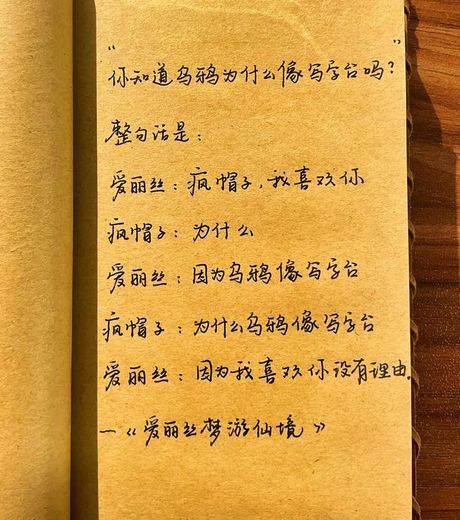 “ ”
你知道乌鸦为什么像写字台吗？
整句话是：
爱丽丝：疯帽子，我喜欢你
疯帽子：为什么
爱丽丝：因为乌鸦像写字台
疯帽子：为什么乌鸦像写字台
爱丽丝：因为我喜欢你没有理由。
—《爱丽丝梦游仙境》